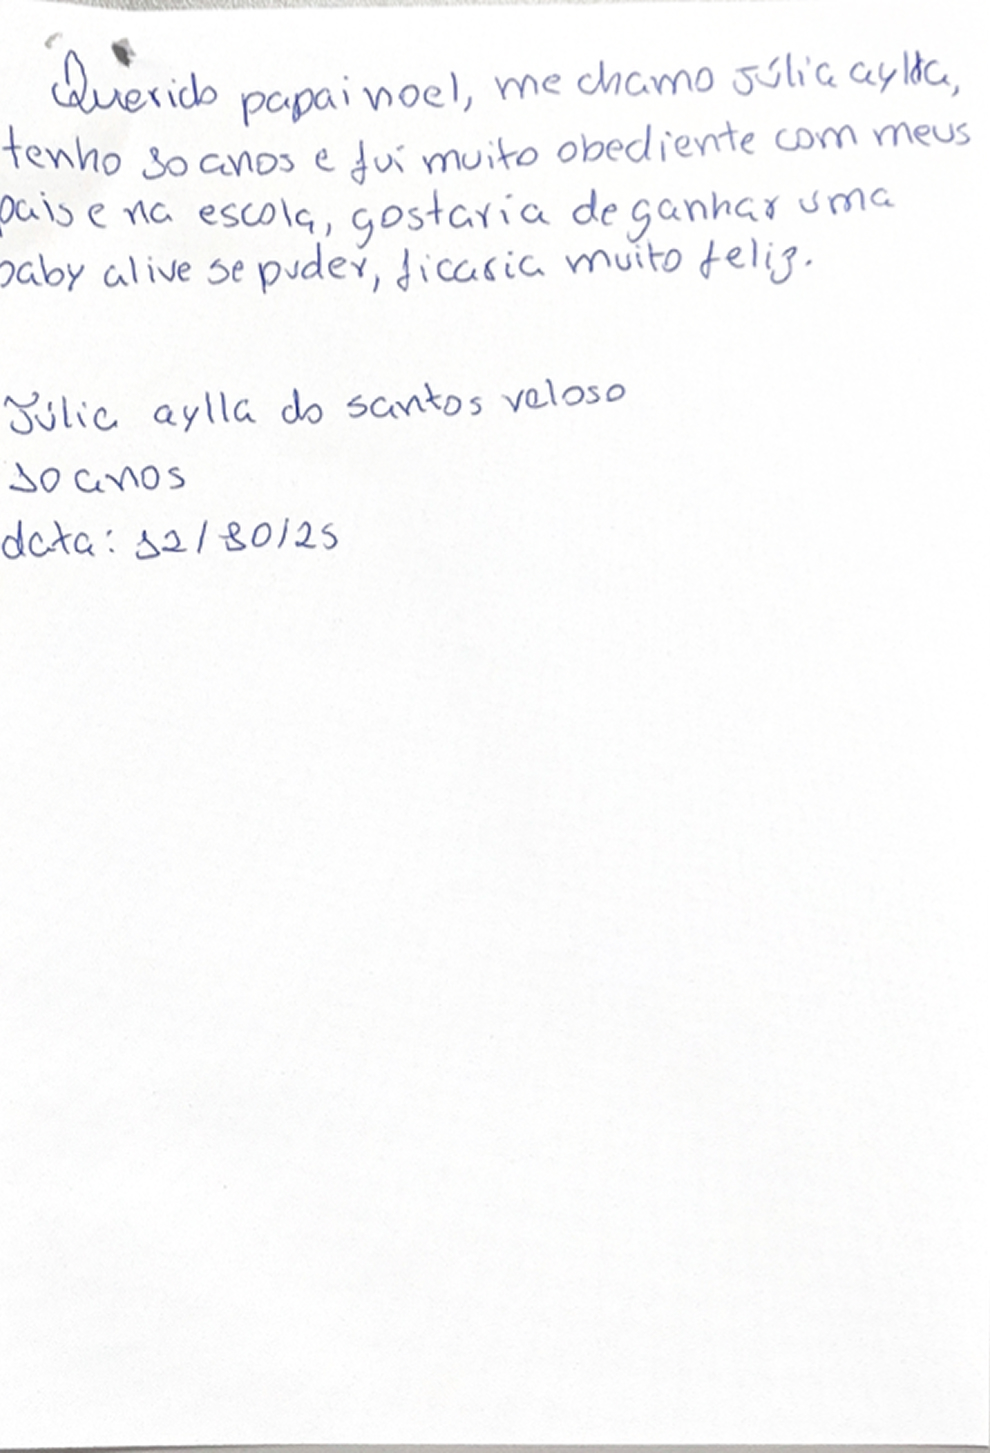 Querido papai noel, me chamo Júlia aylla,
tenho 10 anos e fui muito obediente com meus
pais e na escola, gostaria de ganhar uma
baby alive se puder, ficaria muito feliz.
Júlia aylla do santos veloso
10 anos
data: 12/10/25